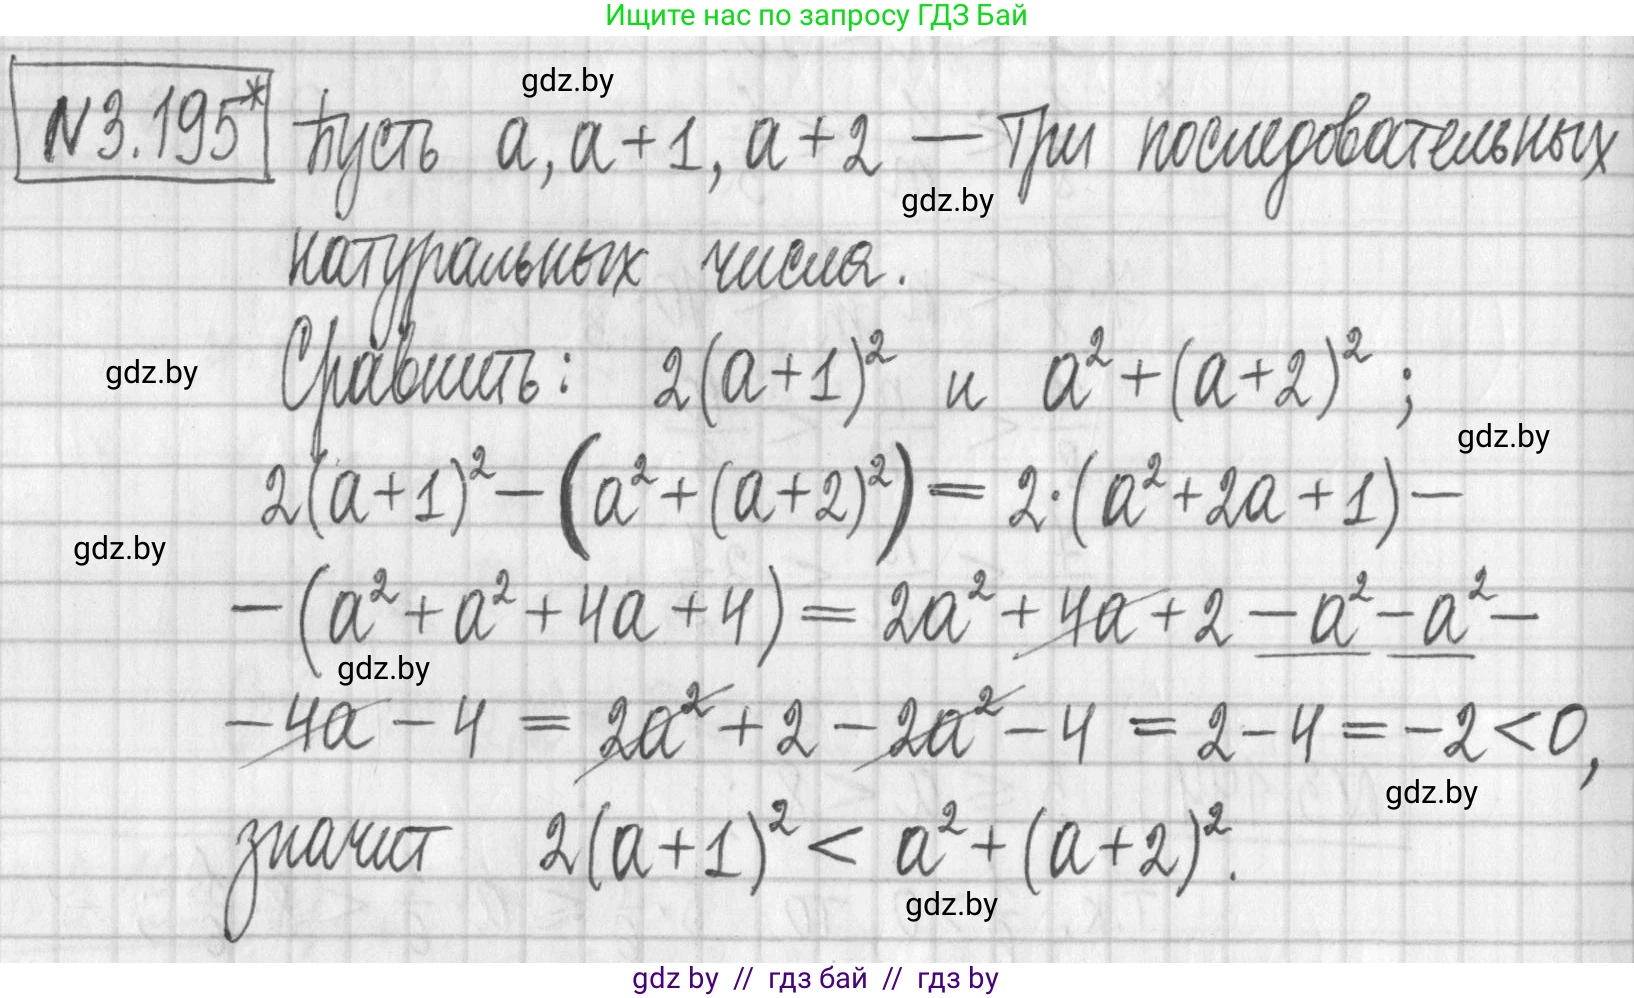 Ищите нас по запросу ГДЗ Бай
N3.195* Пусть a, a+1, a+2 — три последовательных
gdz.by
gdz.by
натуральных числа.
Сравнить: 2(a+1)² и a²+(a+2)²;
gdz.by
gdz.by
2(a+1)²-(a²+(a+2)²)=2·(a²+2a+1)-
gdz.by
-(a²+a²+4a+4)=2a²+4a+2-a²-a²-
gdz.by
-4a-4=2a²+2-2a²-4=2-4=-2<0,
gdz.by
значит 2(a+1)²<a²+(a+2)².
gdz.by
gdz by // гдз бай // гдз by